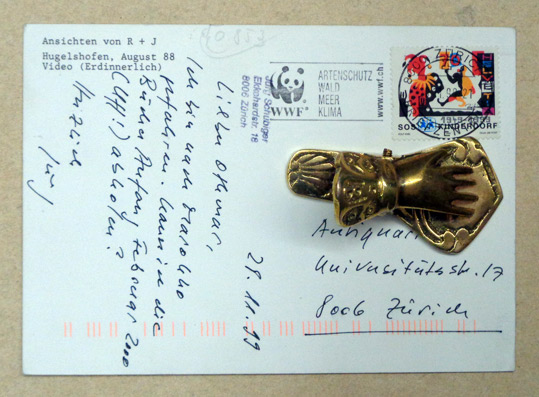 Ansichten von R + J
Hugelshofen, August 88
Video (Erdinnerlich)
Lieber Othmar,
Ich bin nach Marokko
gefahren. Kann ich die
Bücher Anfang Februar 2000
abholen?
Herzlich
Jürg
29.11.99
Jürg
Ekkehardstr. 16
8006 Zürich
WWF
ARTENSCHUTZ
WALD
MEER
KLIMA
ZÜRICH
1949-1999
SOS KINDERDORF
Antiquari
Universitätsstr. 17
8006 Zürich